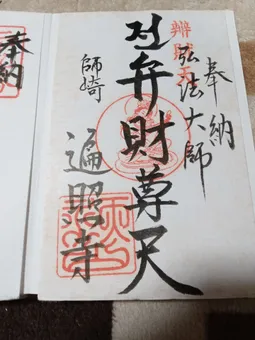 奉納
弘法大師
辨財天
弁財尊天
師崎
遍照寺
奉納